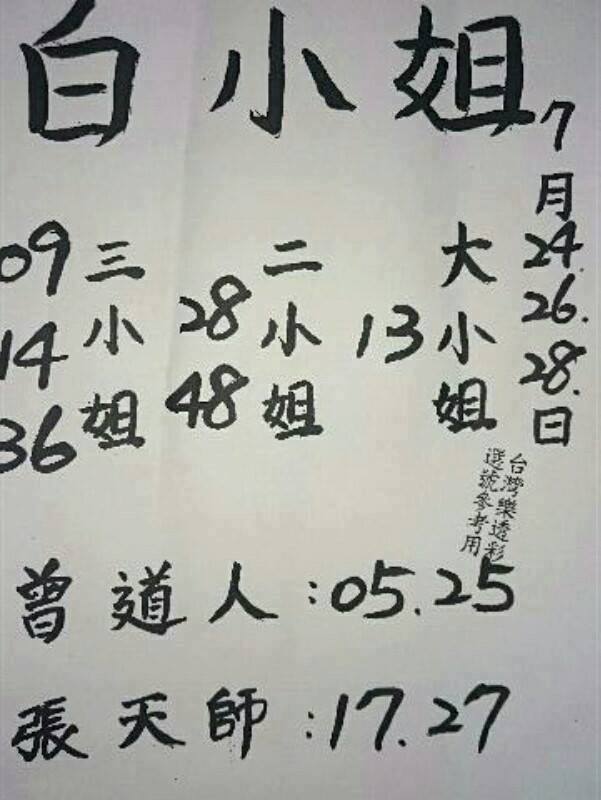 白小姐
7月24.26.28.日
大小姐
13
二小姐
28
48
三小姐
09
14
36
台灣樂透彩
選號參考用
曾道人:05.25
張天師:17.27